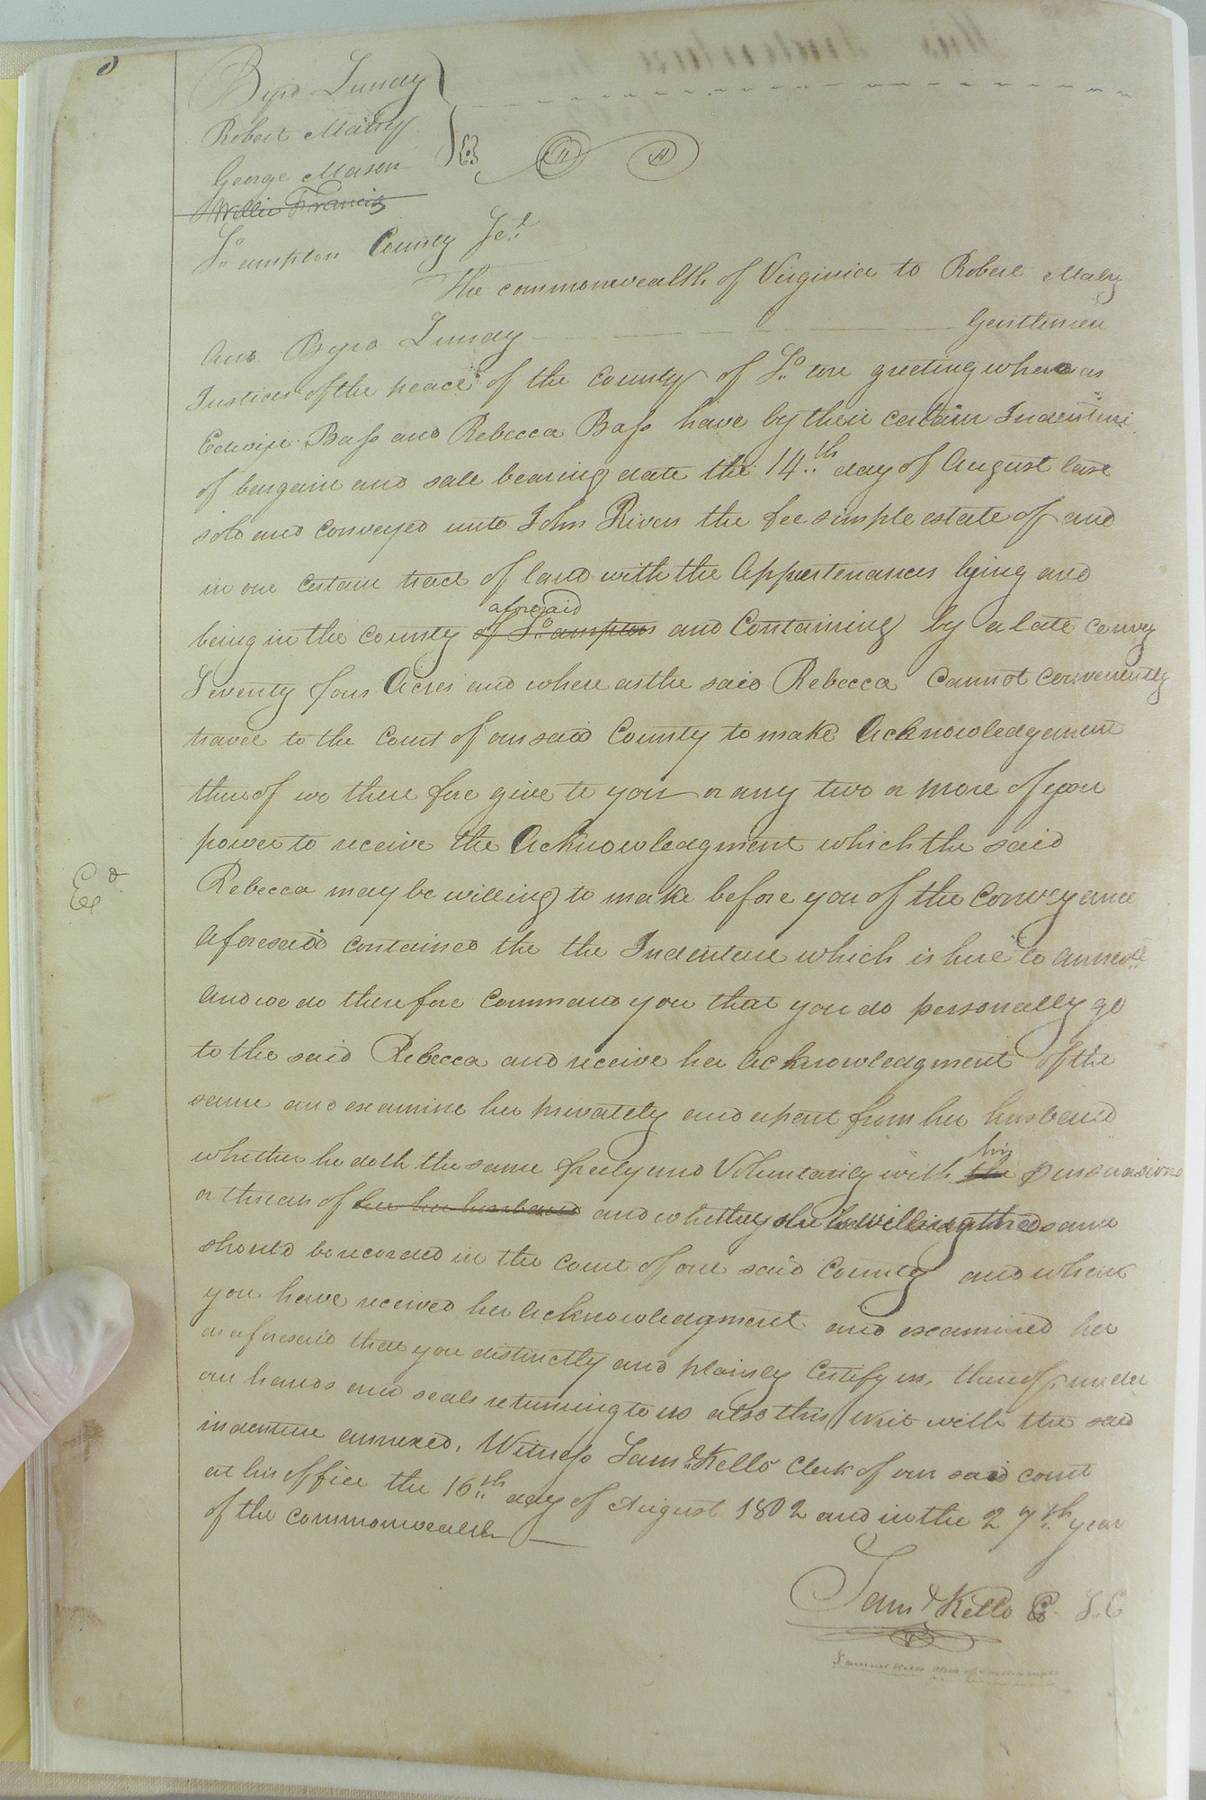 Byrd Lunday
Robert Mabry
George Mason
Willie Francis
So.ampton County Sct
The commonwealth of Virginia to Robert Mabry
and Byrd Lunday Gentlemen
Justices of the peace of the County of So. ton greeting where as
Edwin Bass and Rebecca Bass have by their certain Indenture
of bargain and sale bearing date the 14th day of August last
sold and conveyed unto John Rivers the fee simple estate of and
in one certain tract of land with the Appurtenances lying and
aforesaid
being in the county of So.ampton and Containing by a late
Seventy four Acres and where as the said Rebecca Cannot conveniently
travel to the Court of our said County to make Acknowledgement
thereof we there fore give to you or any two or more of you
power to receive the Acknowledgment which the said
Ed
Rebecca may be willing to make before you of the Conveyance
Aforesaid contained the the Indenture which is here to annexd
And we do therefore command you that you do personally go
to the said Rebecca and receive her acknowledgment of the
same and examine her privately and apart from her husband
his
whether he doth the same freely and Voluntarily with the persuasions
or threats of her her husband and whether she be willing the same
should be recorded in the Court of our said County and when
you have received her acknowledgment and examined her
as aforesaid that you distinctly and plainly Certify us thereof under
our hands and seals returning to us also this writ with the said
indenture annexed. Witness Saml Kello Clerk of our said court
at his office the 16th day of August 1802 and in the 27th year
of the Commonwealth
Saml Kello S.C
Samuel Kello Clerk of Southampton